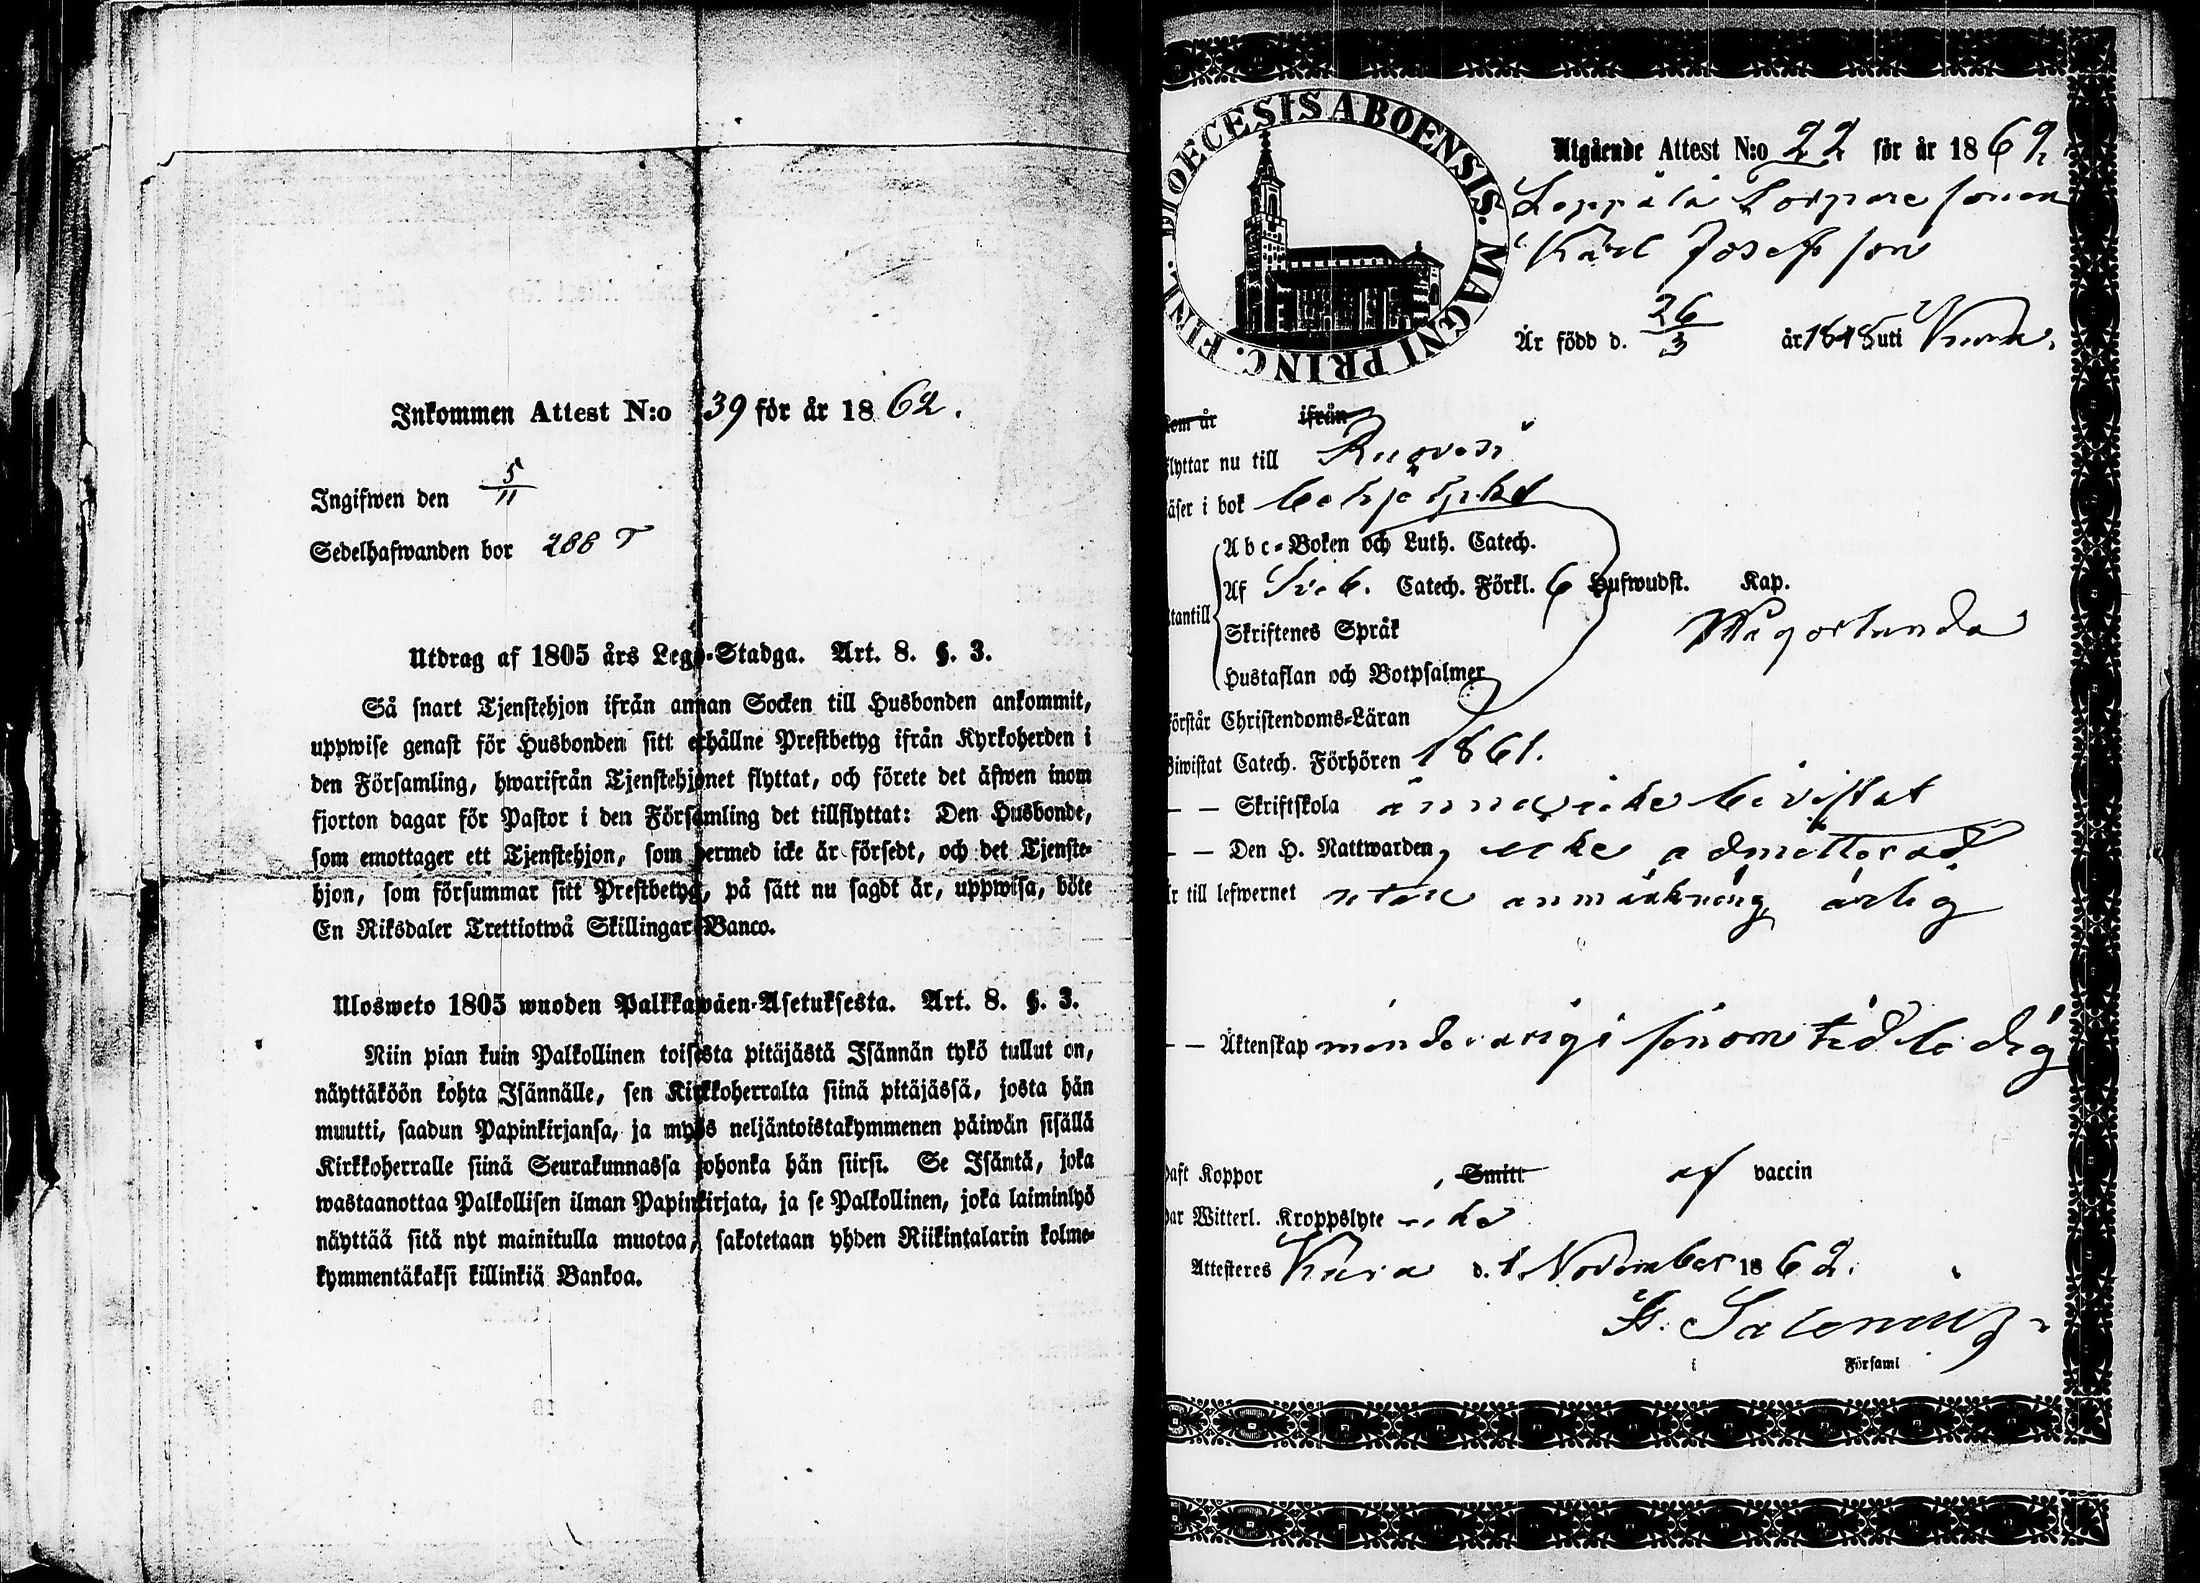 Inkommen Attest N:o 39 för år 1862.
Ingifwen den 5/11
Sedelhafwanden bor 288 T
Utdrag af 1805 års Lego-Stadga. Art. 8. §. 3.
Så snart Tjenstehjon ifrån annan Socken till Husbonden ankommit,
uppwise genast för Husbonden sitt erhållne Prestbetyg ifrån Kyrkoherden i
den Församling, hwarifrån Tjenstehjonet flyttat, och förete det äfwen inom
fjorton dagar för Pastor i den Församling det tillflyttat: Den Husbonde,
som emottager ett Tjenstehjon, som dermed icke är försedt, och det Tjenste-
hjon, som försummar sitt Prestbetyg, på sätt nu sagdt är, uppwisa, böte
En Riksdaler Trettiotwå Skillingar Banco.
Ulosweto 1805 wuoden Palkkawäen-Asetuksesta. Art. 8. §. 3.
Niin pian kuin Palkollinen toisesta pitäjästä Isännän tykö tullut on,
näyttäköön kohta Isännälle, sen Kirkkoherralta siinä pitäjässä, josta hän
muutti, saadun Papinkirjansa, ja myös neljäntoistakymmenen päiwän sisällä
Kirkkoherralle siinä Seurakunnassa johonka hän siirsi. Se Isäntä, joka
wastaanottaa Palkollisen ilman Papinkirjata, ja se Palkollinen, joka laiminlyö
näyttää sitä nyt mainitulla muotoa, sakotetaan yhden Riikintalarin kolme-
kymmentäkaksi killinkiä Bankoa.
DIOECESIS ABOENSIS. MAGNI PRINC. FINL.
Utgående Attest N:o 22 för år 1862
Leppälä Torpare sonen
Karl Josefsson
Är född d. 26/3 år 1848 uti Kiura.
kom år ifrån
flyttar nu till
läser i bok behjelpl
Abc-Boken och Luth. Catech.
Af Sveb. Catech. Förkl. 6 Hufwudst. Kap.
utantill Skriftenes Språk Någorlunda
Hustaflan och Botpsalmer
förstår Christendoms-Läran
Biwistat Catech. Förhören 1861.
— — Skriftskola ännu icke bevistat
— — Den H. Nattwarden, icke admitterad
är till lefwernet utan anmärkning, ärlig
— — Äktenskap minderårige genom tid ledig
haft Koppor , Smitt af vaccin
har Witterl. Kroppslyte icke
Attesteres Kiura d. 1 November 1862.
G. Salenius
i Församl